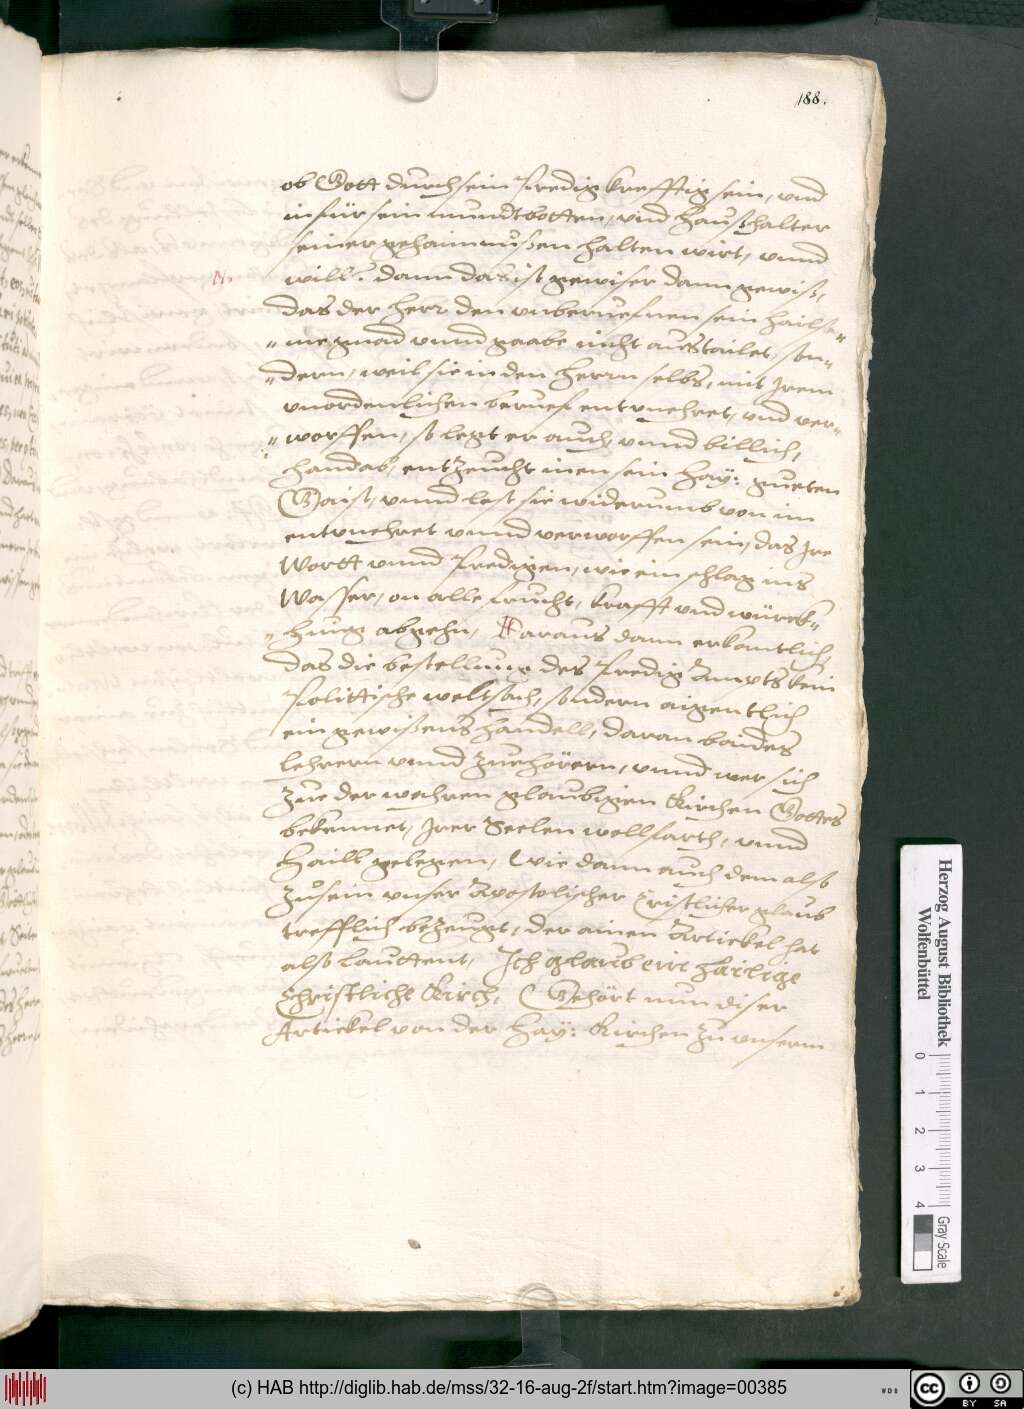 188.
ob Gott durch sein Predig krefftig sein, vnd
in für sein mundtbotten, vnd Haußhalter
seiner gehaimnußen halten wirt, vnnd
N.
will. dann das ist gewiser dann gewiß,
das der Herr den vnberuefnen sein hailsa"
"me gnad vnnd gaabe nicht austailet, son"
"dern, weil sie in den Herrn selbs, mit Jrem
vnordenlichen beruef entvnehret, vnd ver"
"worffen, so legt er auch vnnd billich,
handab, entzeucht inen sein Hay: gueten
Gaist, vnnd lest sie widerumb von im
entvnehret vnnd verworffen sein, das Jre
Wortt vnnd Predigen, wie ein schlag ins
Wasser, on alle frucht, krafft vnd würck"
"hung abgehn, Daraus dann erkantlich,
das die bestellung des Predig Ampts kein
Polittische weltsach, sondern aigentlich
ein gewißens handell, daran baides
Lehrern vnnd Zuehörern, vnnd wer sich
zue der wahren glaubigen Kirchen Gottes
bekennet, Jrer Seelen wollfarth, vnnd
Haill gelegen, Wie dann auch dem also
zusein vnser Apostolischer Cristlicher glaub
trefflich bezeugt, der ainen Artickel hat
also lauttent, Ich glaub eine Hailige
Christliche Kirch, Gehört nun diser
Artickel von der Hay: Kirchen zu vnserm
Herzog August Bibliothek
Wolfenbüttel
0 1 2 3 4
Gray Scale
(c) HAB http://diglib.hab.de/mss/32-16-aug-2f/start.htm?image=00385
WDB
cc BY SA